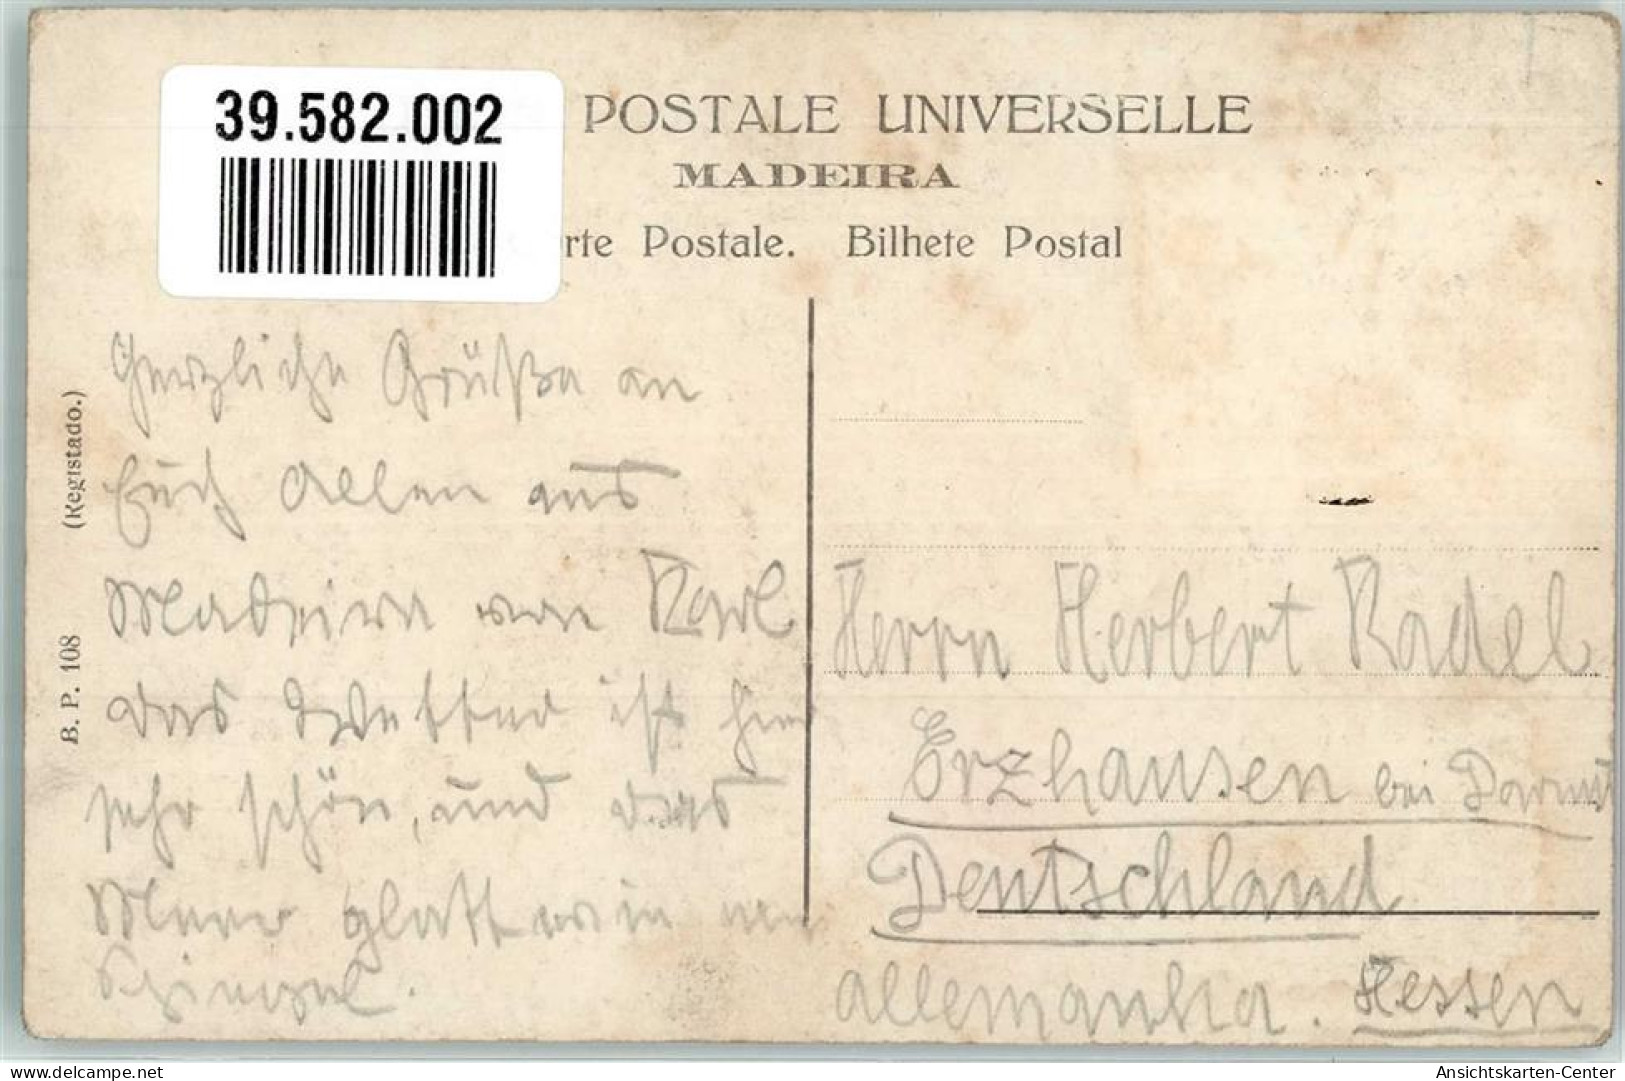 39.582.002
POSTALE UNIVERSELLE
MADEIRA
rte Postale. Bilhete Postal
(Registado.)
B. P. 108
Herzliche Grüße an
Euch Allen aus
Madeira von Karl
das Wetter ist hier
sehr schön, und das
Meer glatt wie ein
Spiegel.
Herrn Herbert Radel
Erzhausen bei Darmst
Deutschland
Allemanha. Hessen
www.delcampe.net
Ansichtskarten-Center